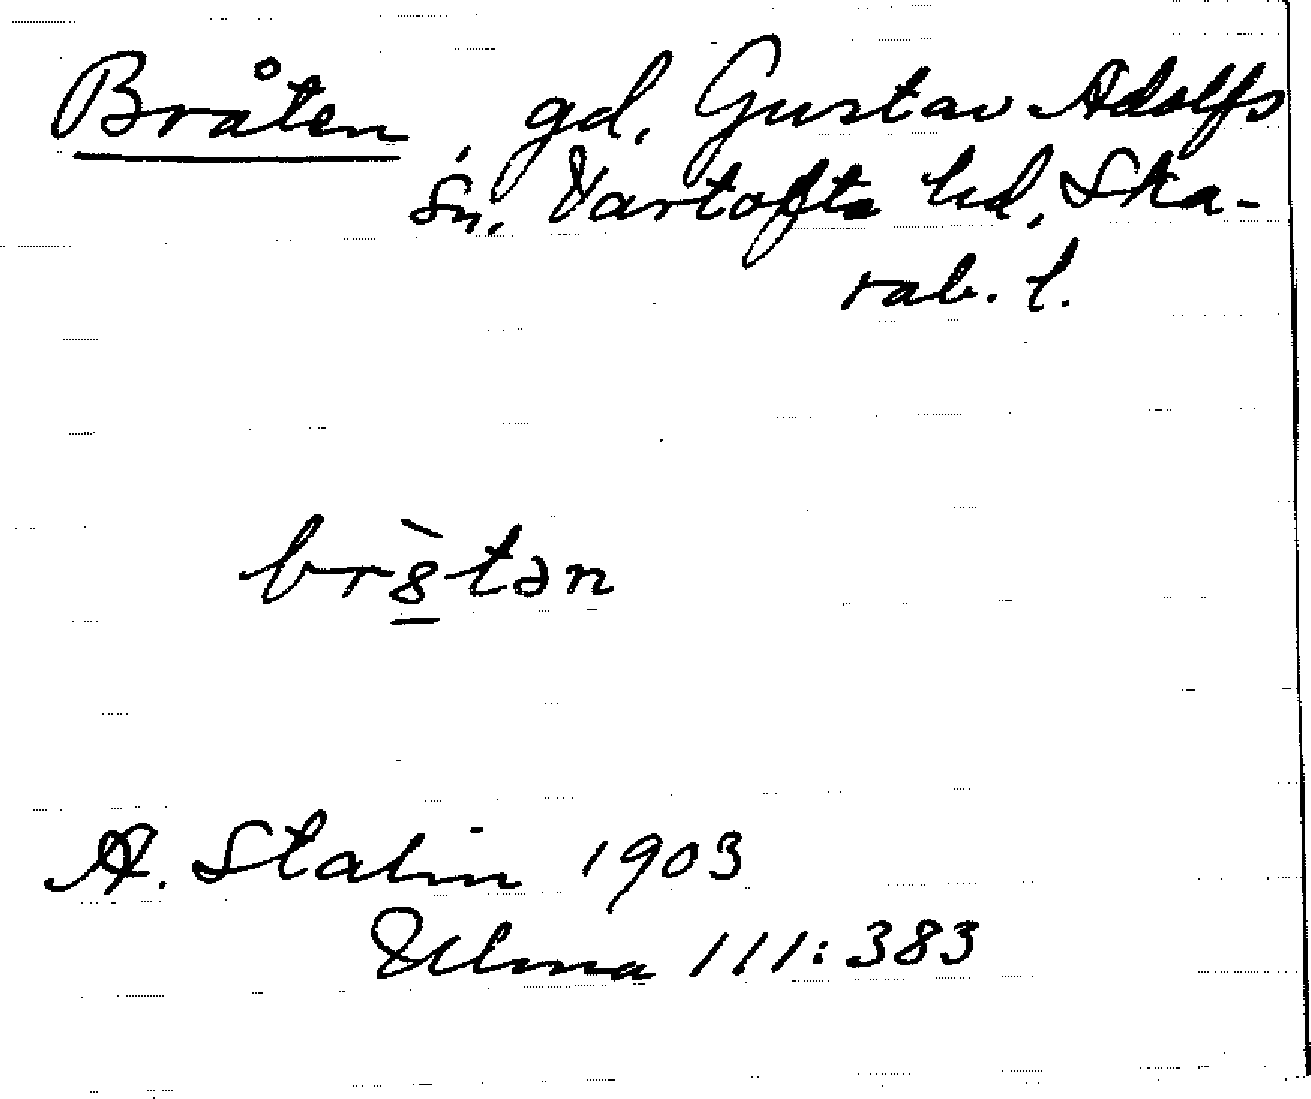 Bråten, gd. Gustav Adolfs
sn. Vartofta hd, Ska-
rab. l.
br8̲̀tən
A. Stalin 1903
Ulma 111:383